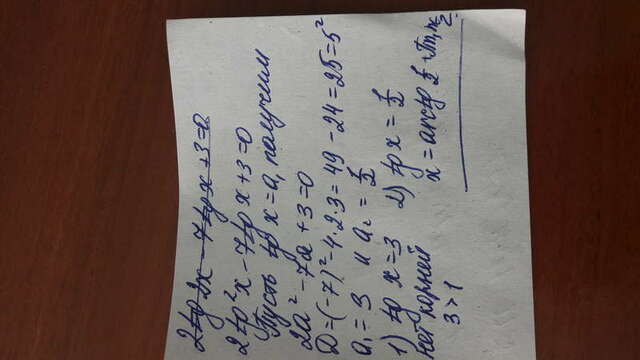 2tg 2x - 7tg x + 3 = 0
2tg²x - 7tg x + 3 = 0
Пусть tg x = a, получим
2a² - 7a + 3 = 0
D = (-7)² - 4·2·3 = 49 - 24 = 25 = 5²
a₁ = 3 и a₂ = 1/2
1) tg x = 3 2) tg x = 1/2
нет корней x = arctg 1/2 + πn, n∈Z.
3 > 1